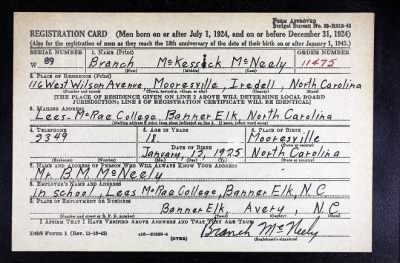 FORM APPROVED
Budget Bureau No. 33-R012-43
REGISTRATION CARD (Men born on or after July 1, 1924, and on or before December 31, 1924)
(Also for the registration of men as they reach the 18th anniversary of the date of their birth on or after January 1, 1943.)
SERIAL NUMBER 1. NAME (Print) ORDER NUMBER
W 89 Branch McKessick McNeely 11475
2. PLACE OF RESIDENCE (Print)
116 West Wilson Avenue Mooresville, Iredell, North Carolina
[THE PLACE OF RESIDENCE GIVEN ON LINE 2 ABOVE WILL DETERMINE LOCAL BOARD
JURISDICTION; LINE 2 OF REGISTRATION CERTIFICATE WILL BE IDENTICAL]
3. MAILING ADDRESS
Lees-McRae College, Banner Elk, North Carolina
4. TELEPHONE 5. AGE IN YEARS 6. PLACE OF BIRTH
2349 18 Mooresville
DATE OF BIRTH
January, 13, 1925 North Carolina
7. NAME AND ADDRESS OF PERSON WHO WILL ALWAYS KNOW YOUR ADDRESS
Mr. B. M. McNeely
8. EMPLOYER'S NAME AND ADDRESS
in school, Lees McRae College, Banner Elk, N.C
9. PLACE OF EMPLOYMENT OR BUSINESS
Banner Elk, Avery, N.C
I AFFIRM THAT I HAVE VERIFIED ABOVE ANSWERS AND THAT THEY ARE TRUE.
Branch McNeely
DSS Form 1 (Rev. 11-16-42) (OVER) (Registrant's signature)